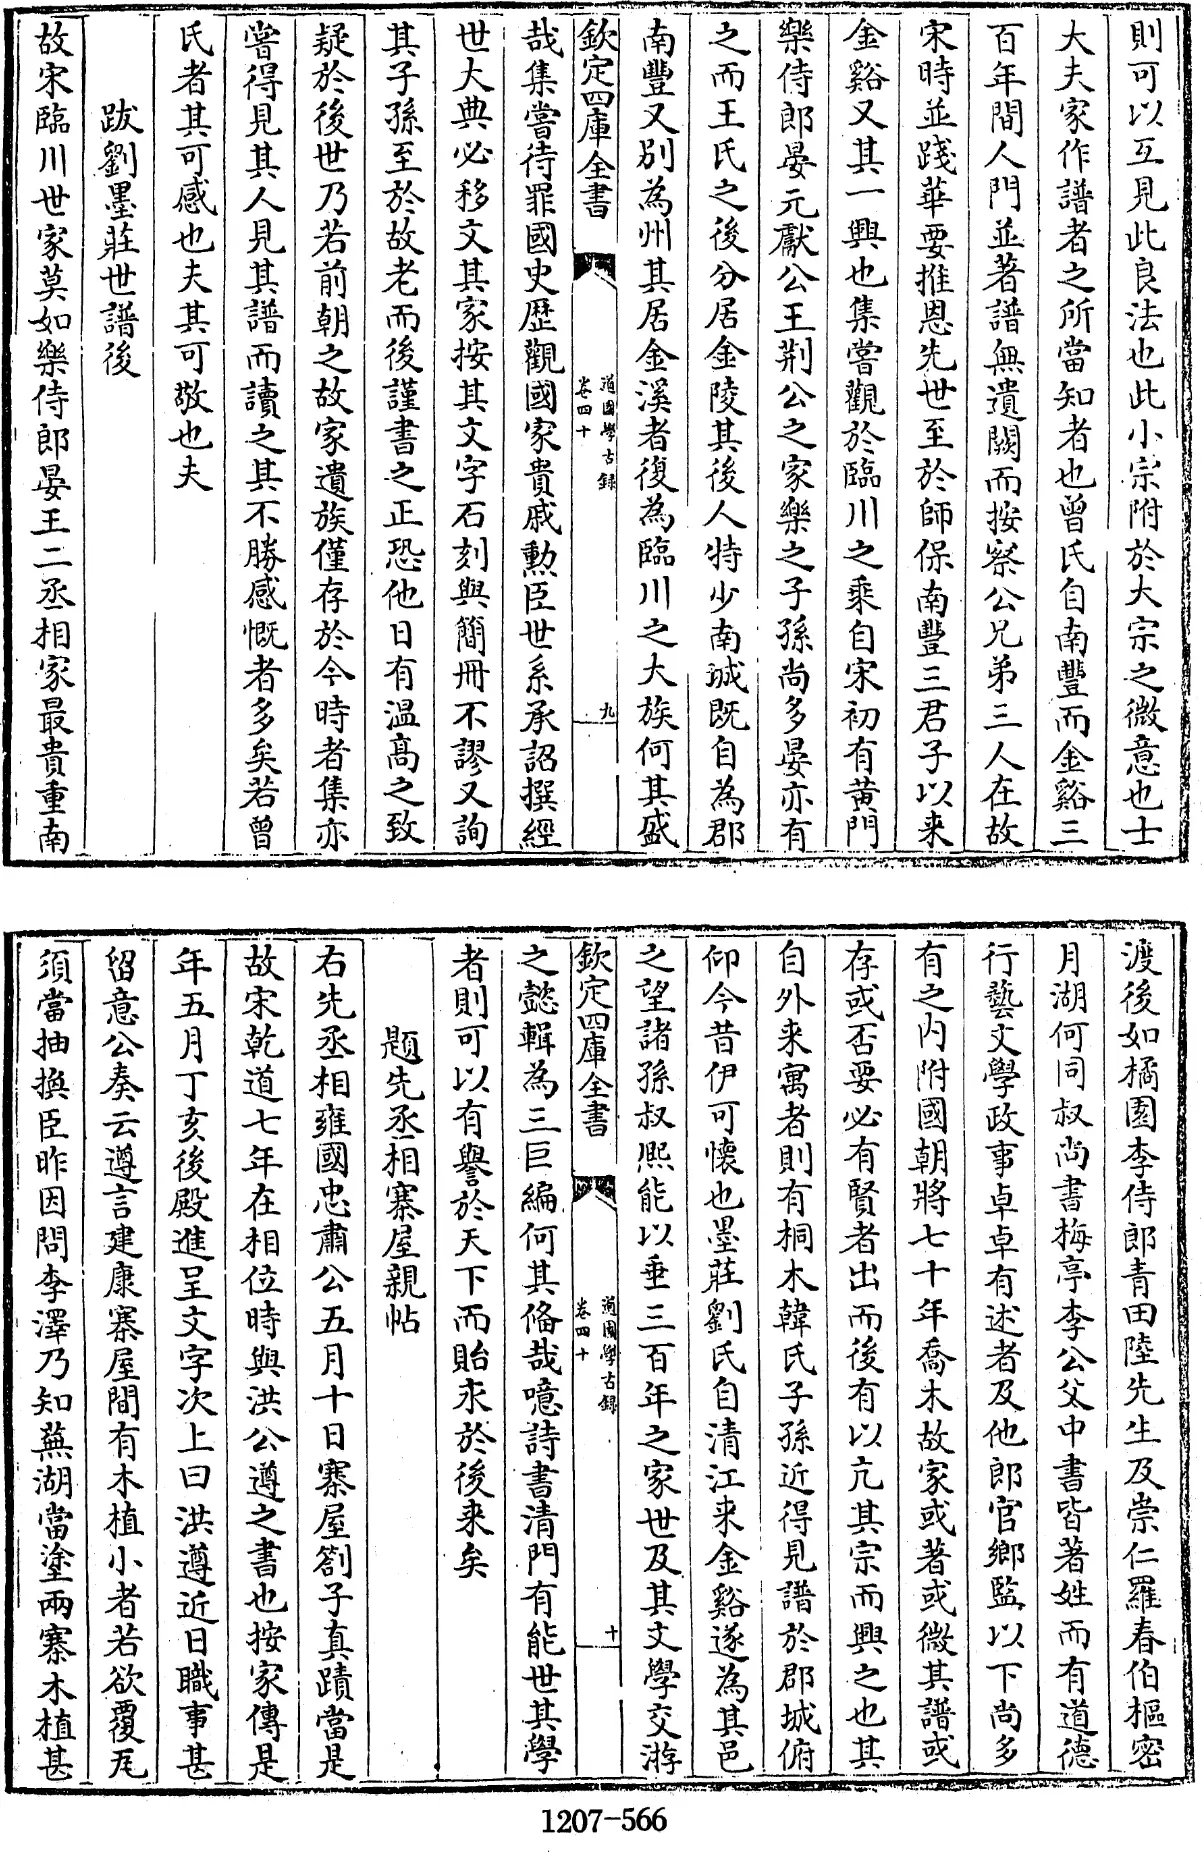 則可以互見此良法也此小宗附於大宗之微意也士
大夫家作譜者之所當知者也曾氏自南豐而金谿三
百年間人門並著譜無遺闕而按察公兄弟三人在故
宋時並踐華要推恩先世至於師保南豐三君子以来
金谿又其一興也集嘗觀於臨川之乘自宋初有黄門
樂侍郎晏元獻公王荆公之家樂之子孫尚多晏亦有
之而王氏之後分居金陵其後人特少南城既自為郡
南豐又别為州其居金溪者復為臨川之大族何其盛
欽定四庫全書
道園學古録
卷四十
九
哉集嘗待罪國史歴觀國家貴戚勲臣世系承詔撰經
世大典必移文其家按其文字石刻與簡冊不謬又詢
其子孫至於故老而後謹書之正恐他日有温髙之致
疑於後世乃若前朝之故家遺族僅存於今時者集亦
嘗得見其人見其譜而讀之其不勝感慨者多矣若曾
氏者其可感也夫其可敬也夫
跋劉墨莊世譜後
故宋臨川世家莫如樂侍郎晏王二丞相家最貴重南
渡後如橘園李侍郎青田陸先生及崇仁羅春伯樞密
月湖何同叔尚書梅亭李公父中書皆著姓而有道德
行藝文學政事卓卓有述者及他郎官鄉監以下尚多
有之内附國朝將七十年喬木故家或著或微其譜或
存或否要必有賢者出而後有以亢其宗而興之也其
自外来寓者則有桐木韓氏子孫近得見譜於郡城俯
仰今昔伊可懷也墨莊劉氏自清江来金谿遂為其邑
之望諸孫叔熙能以垂三百年之家世及其文學交游
欽定四庫全書
道園學古録
卷四十
十
之懿輯為三巨編何其俻哉噫詩書清門有能世其學
者則可以有譽於天下而貽永於後来矣
題先丞相寨屋親帖
右先丞相雍國忠肅公五月十日寨屋劄子真蹟當是
故宋乾道七年在相位時與洪公遵之書也按家傳是
年五月丁亥後殿進呈文字次上曰洪遵近日職事甚
留意公奏云遵言建康寨屋間有木植小者若欲覆瓦
須當抽换臣昨因問李澤乃知蕪湖當塗兩寨木植甚
1207-566